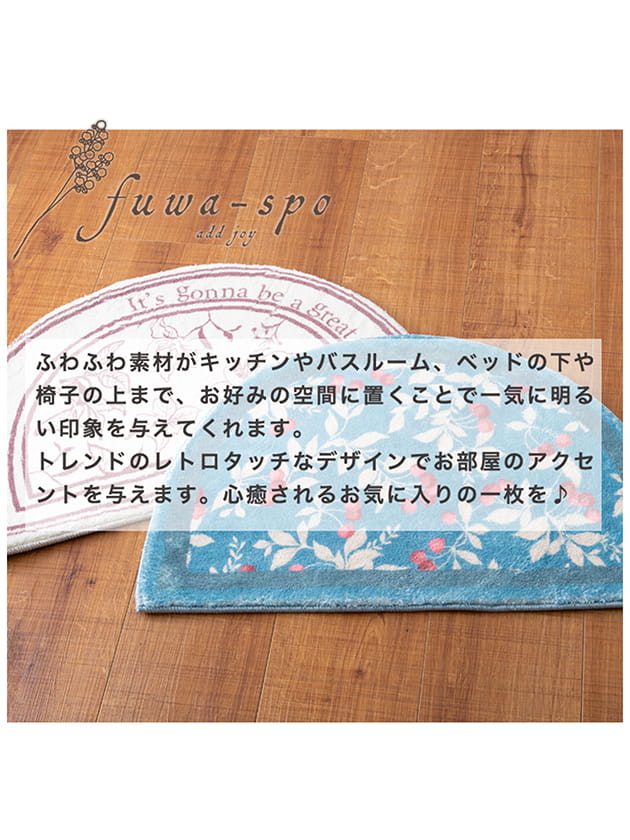 fuwa-spo
add joy
It's gonna be a great
ふわふわ素材がキッチンやバスルーム、ベッドの下や
椅子の上まで、お好みの空間に置くことで一気に明る
い印象を与えてくれます。
トレンドのレトロタッチなデザインでお部屋のアクセ
ントを与えます。心癒されるお気に入りの一枚を♪